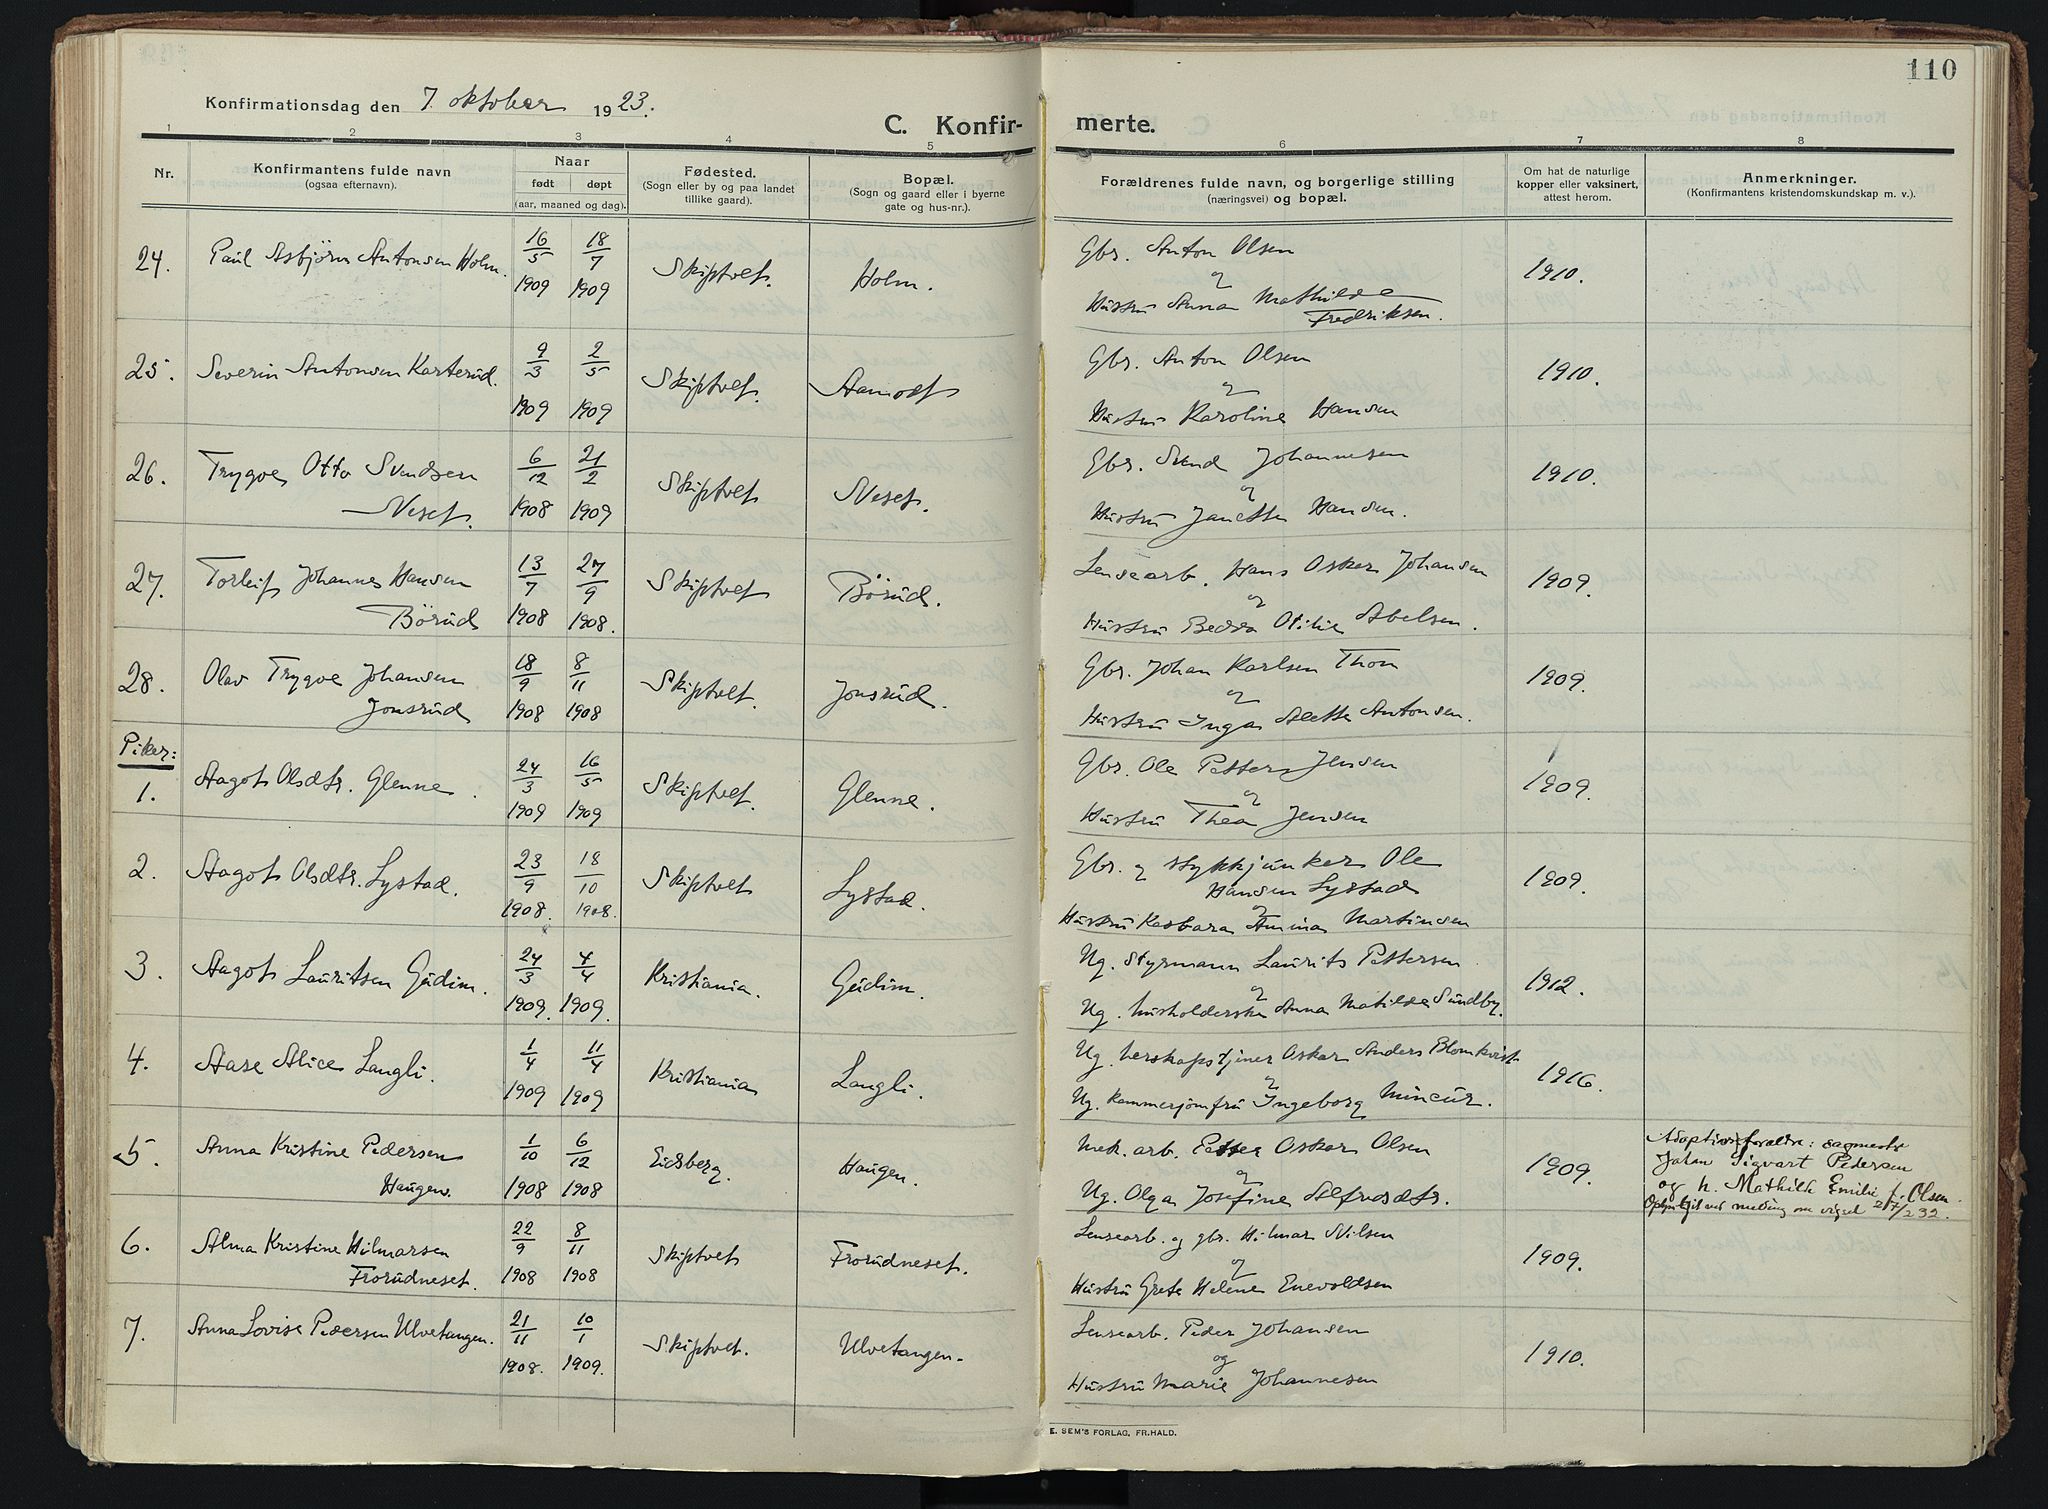 110
Konfirmationsdag den 7. oktober 1923.
C. Konfir-
merte.
1 2 3 4 5 6 7 8
Nr.
Konfirmantens fulde navn
(ogsaa efternavn).
Naar
født døpt
(aar, maaned og dag).
Fødested.
(Sogn eller by og paa landet
tillike gaard).
Bopæl.
(Sogn og gaard eller i byerne
gate og hus-nr.).
Forældrenes fulde navn, og borgerlige stilling
(næringsvei) og bopæl.
Om hat de naturlige
kopper eller vaksinert,
attest herom.
Anmerkninger.
(Konfirmantens kristendomskundskap m. v.).
24. Paul Asbjørn Antonsen Holm. 16/5 1909 18/7 1909 Skiptvet. Holm.
Gbr. Anton Olsen
og
Hustru Anna Mathilde
Fredriksen.
1910.
25. Severin Antonsen Karterud. 9/3 1909 2/5 1909 Skiptvet. Aamodt
Gbr. Anton Olsen
og
Hustru Karoline Hansen
1910.
26. Trygve Otto Svendsen
Neset. 6/12 1908 21/2 1909 Skiptvet Neset.
Gbr. Svend Johannesen
og
Hustru Janette Hansen.
1910.
27. Torleif Johannes Hansen
Børud 13/7 1908 27/9 1908. Skiptvet Børud.
Lensearb. Hans Oskar Johansen
og
Hustru Bedda Otilie Abelsen.
1909.
28. Olav Trygve Johansen
Jonsrud 18/9 1908 8/11 1908 Skiptvet. Jonsrud.
Gbr. Johan Karlsen Thon
og
Hustru Inga Alette Antonsen.
1909.
Piker:
1. Aagot Olsdtr. Glenne. 24/3 1909 16/5 1909 Skiptvet. Glenne.
Gbr. Ole Petter Jensen
og
Hustru Thea Jensen
1909.
2. Aagot Olsdtr. Lystad. 23/9 1908. 18/10 1908. Skiptvet Lystad.
Gbr. og stykkjunker Ole
Hansen Lystad
og
Hustru Kasbara Amina Martinsen
1909.
3. Aagot Lauritsen Gudim. 24/3 1909. 4/4 1909. Kristiania. Gudim.
Ug. Styrmann Laurits Pettersen
og
Ug. husholderske Anna Matilde Sundby.
1912.
4. Aase Alice Langli. 1/4 1909 11/4 1909 Kristiania Langli.
Ug. herskapstjener Oskar Anders Blomkvist
og
Ug. Kammerjomfru Ingeborg
1916.
5. Anna Kristine Pedersen
Haugen. 1/10 1908 6/12 1908 Eidsberg. Haugen.
Mek. arb. Petter Oskar Olsen
og
Ug. Olga Josefine Alfredsdtr.
1909.
Adoptivforældre: sagmester
Johan Sigvart Pedersen
og h. Mathilde Emilie f. Olsen.
6. Alma Kristine Hilmarsen
Frorudneset. 22/9 1908 8/11 1908 Skiptvet Frorudneset.
Lensearb. og gbr. Hilmar Nilsen
og
Hustru Grete Helene Enevoldsen
1909.
7. Anna Lovise Pedersen Ulvetangen. 21/11 1908. 10/1 1909. Skiptvet. Ulvetangen.
Lensearb. Peder Johansen
og
Hustru Marie Johannesen
1910.
E. SEM'S FORLAG, FR.HALD.